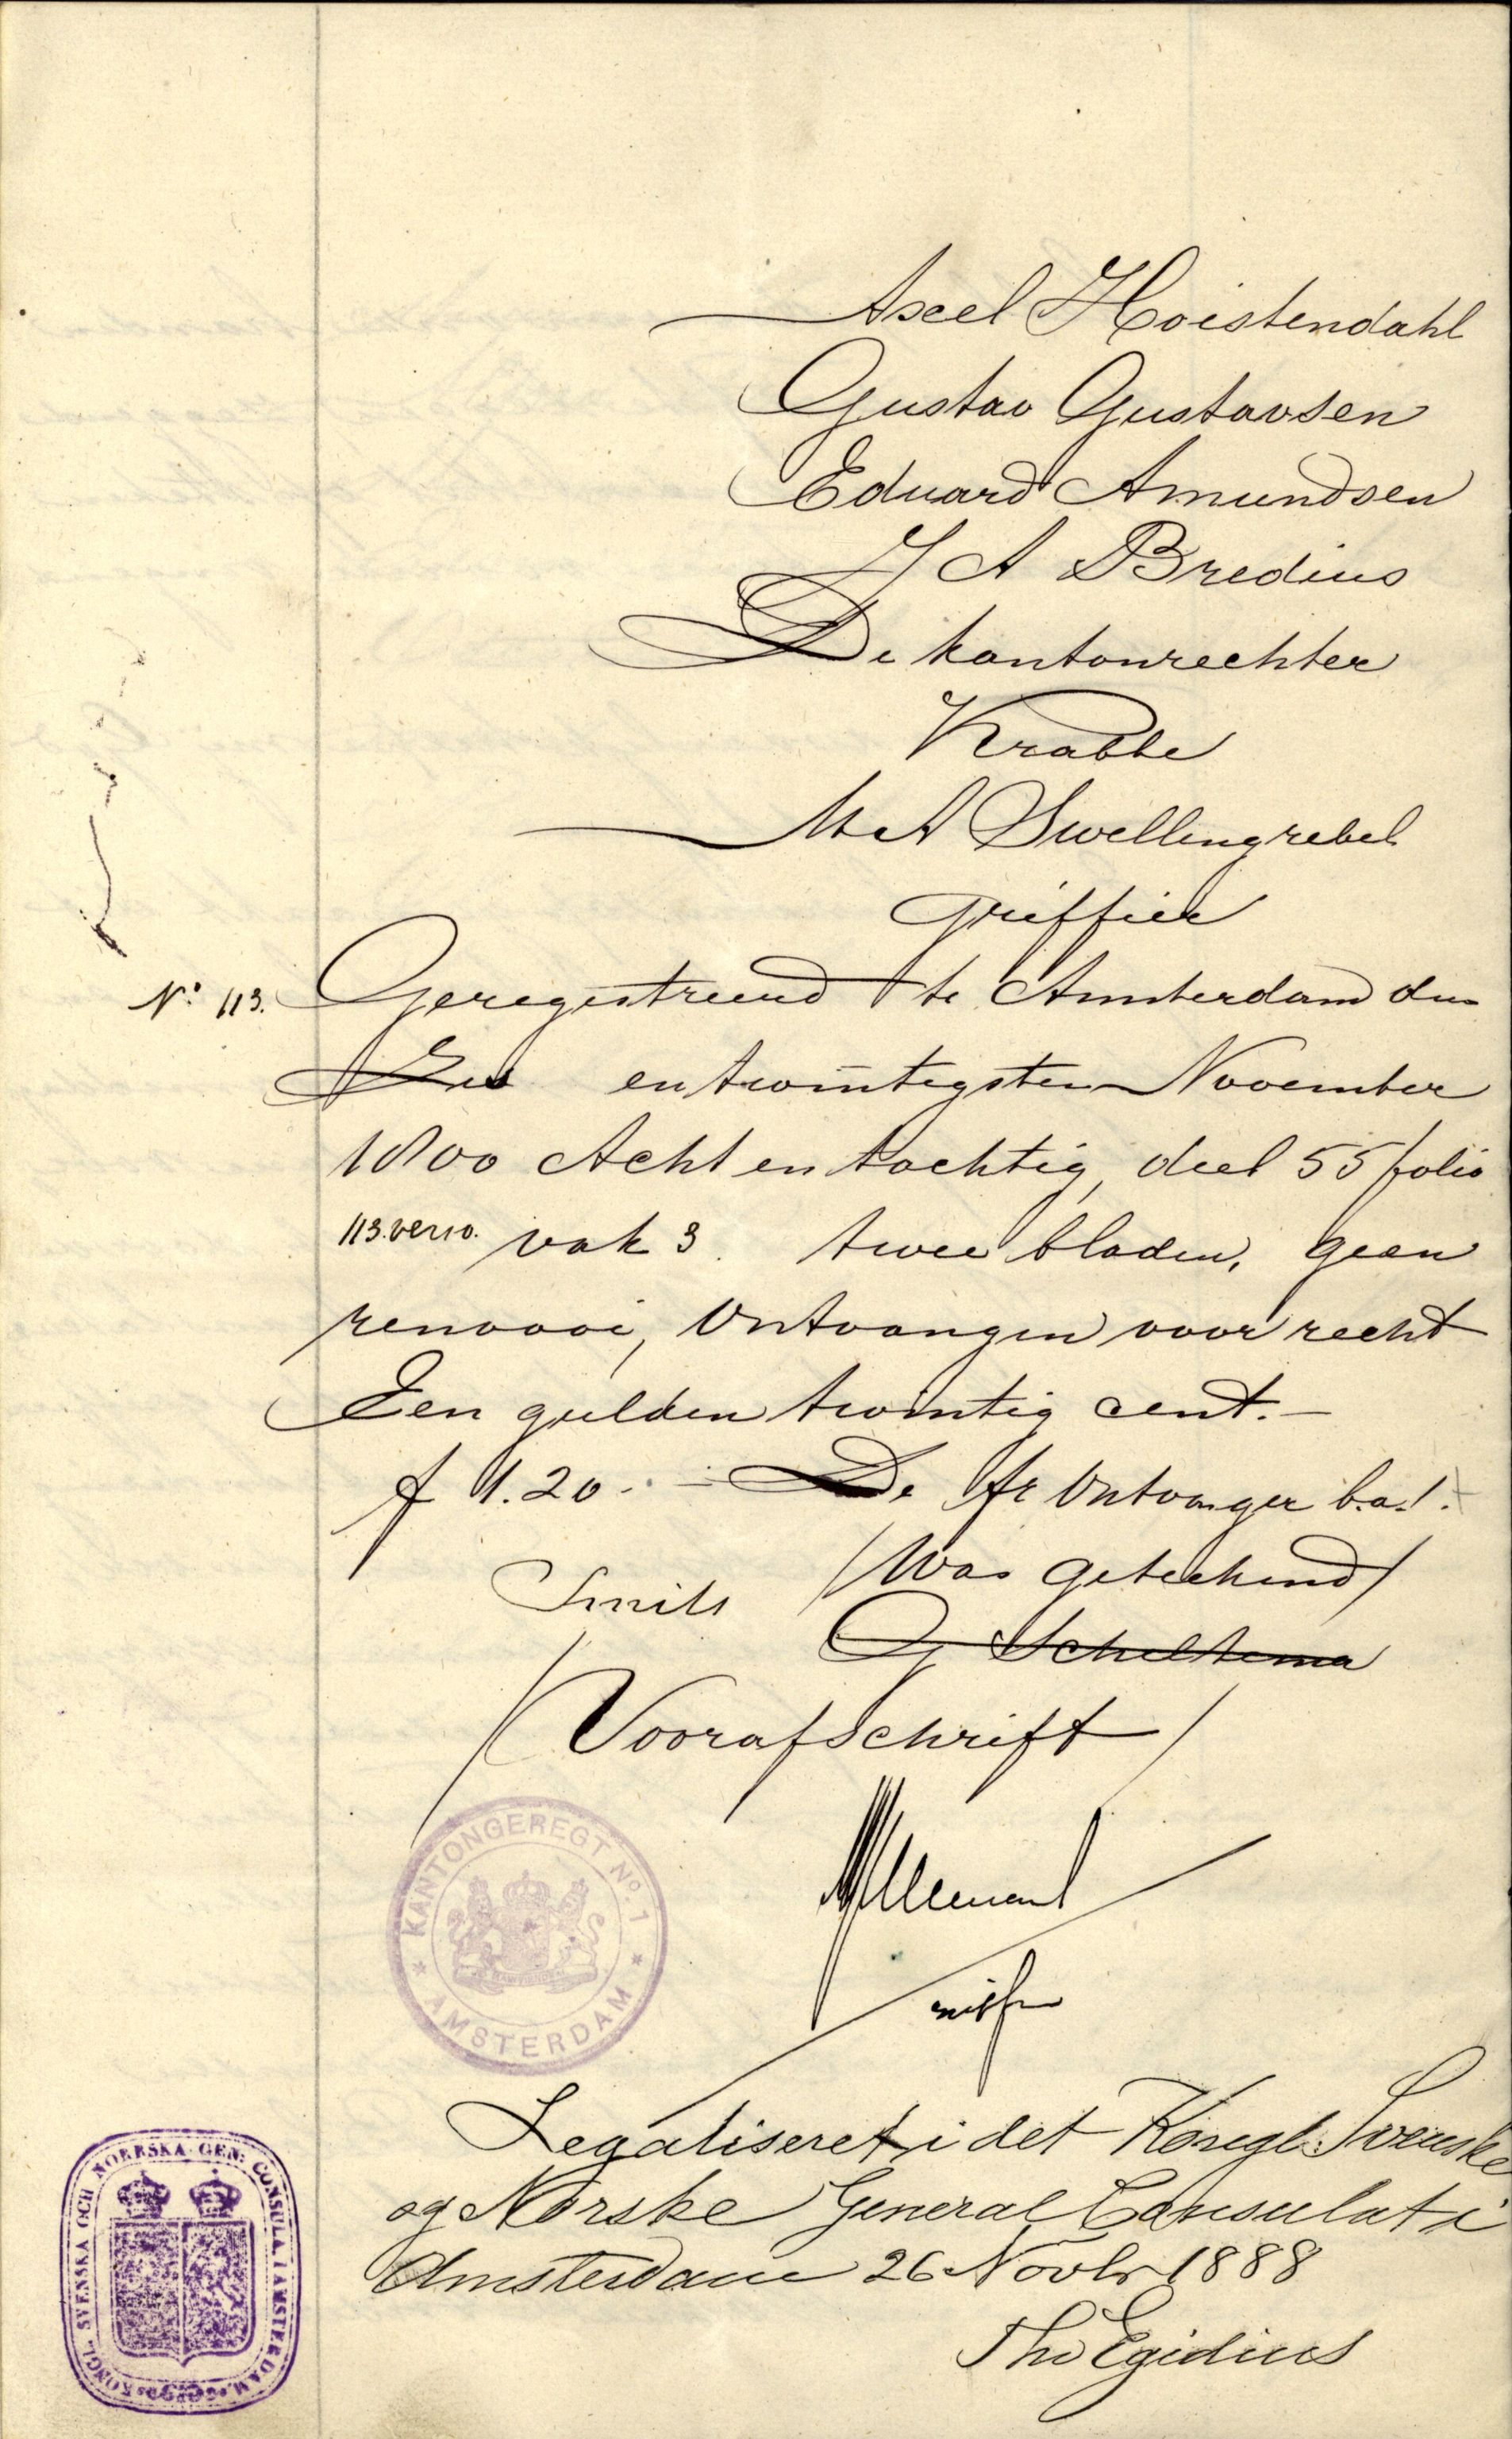 Axel Hoistendahl
Gustav Gustavsen
Eduard Amundsen
J A Bredius
De kantonrechter
Krabbe
M A Swellengrebel
griffier
No 113. Geregistreerd te Amsterdam den
en twintigsten November
1800 Acht en tachtig, deel 55 folio
113. verso. vak 3. twee bladen, geen
renvooi, Ontvangen voor recht
Een gulden twintig cent.-
f 1.20.- De Ontvanger b.a.
(Was geteekend)
Smits
G Scheltema
(Voor afschrift)
KANTONGEREGT No. 1
AMSTERDAM
Legaliseret i det Kongl: Svenske
og Norske General Consulat i
Amsterdam 26 Novbr 1888
Tho Egidius
KONGL. SVENSKA OCH NORRSKA GEN: CONSUL. I AMSTERDAM